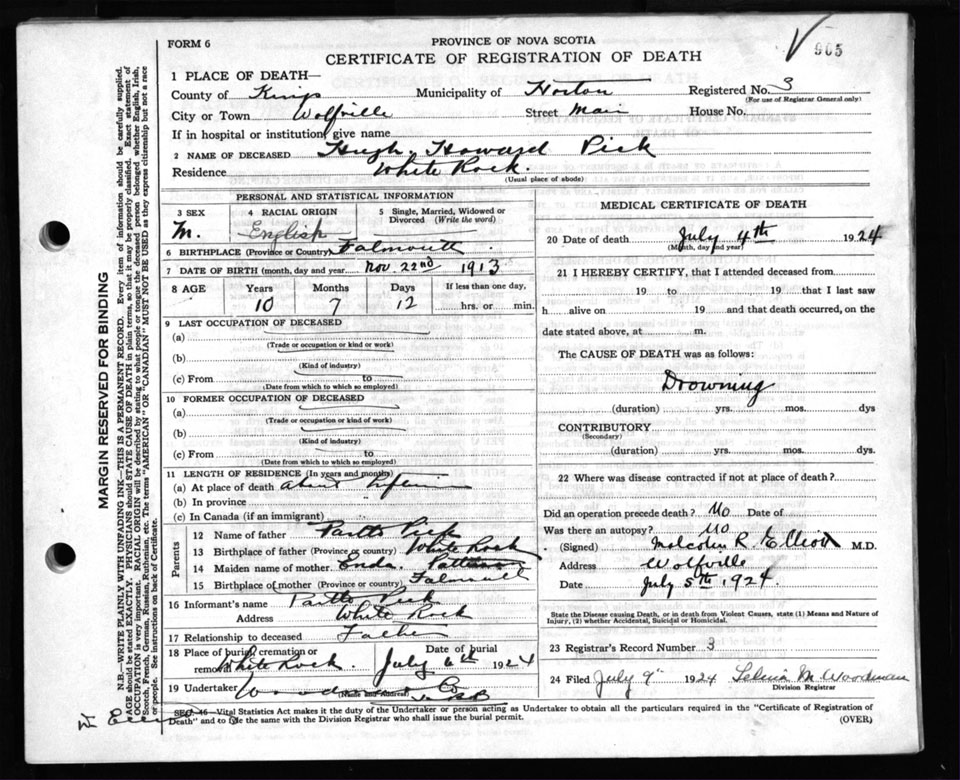 905
FORM 6
PROVINCE OF NOVA SCOTIA
CERTIFICATE OF REGISTRATION OF DEATH
1 PLACE OF DEATH—
County of Kings Municipality of Horton Registered No. 3
(For use of Registrar General only)
City or Town Wolfville Street Main House No.
If in hospital or institution, give name
2 NAME OF DECEASED Hugh Howard Pick
Residence White Rock.
(Usual place of abode)
PERSONAL AND STATISTICAL INFORMATION
3 SEX 4 RACIAL ORIGIN 5 Single, Married, Widowed or Divorced (Write the word)
M. English
6 BIRTHPLACE (Province or Country) Falmouth
7 DATE OF BIRTH (month, day and year) Nov. 22nd 1913
8 AGE Years Months Days If less than one day,
10 7 12 hrs. or min.
9 LAST OCCUPATION OF DECEASED
(a)
(Trade or occupation or kind or work)
(b)
(Kind of industry)
(c) From to
(Date from which to which so employed)
10 FORMER OCCUPATION OF DECEASED
(a)
(Trade or occupation or kind of work)
(b)
(Kind of industry)
(c) From to
(Date from which to which so employed)
11 LENGTH OF RESIDENCE (In years and months)
(a) At place of death about
(b) In province
(c) In Canada (if an immigrant)
Parents
12 Name of father Pick
13 Birthplace of father (Province or country) White Rock
14 Maiden name of mother
15 Birthplace of mother (Province or country) Falmouth
16 Informant's name Pick
Address White Rock
17 Relationship to deceased Father
18 Place of burial, cremation or removal White Rock. Date of burial July 6th 1924
19 Undertaker
(Name and Address)
MEDICAL CERTIFICATE OF DEATH
20 Date of death July 4th 1924
(Month, day and year)
21 I HEREBY CERTIFY, that I attended deceased from
19 to 19 that I last saw
h alive on 19 and that death occurred, on the
date stated above, at m.
The CAUSE OF DEATH was as follows:
Drowning
(duration) yrs. mos. dys
CONTRIBUTORY
(Secondary)
(duration) yrs. mos. dys.
22 Where was disease contracted if not at place of death?
Did an operation precede death? No Date of
Was there an autopsy? No
(Signed) Malcolm R. Elliott M.D.
Address Wolfville
Date July 5th 1924.
State the Disease causing Death, or in death from Violent Causes, state (1) Means and Nature of
Injury, (2) whether Accidental, Suicidal or Homicidal.
23 Registrar's Record Number 3
24 Filed July 9" 1924 M. Woodman
Division Registrar
SEC. 16—Vital Statistics Act makes it the duty of the Undertaker or person acting as Undertaker to obtain all the particulars required in the "Certificate of Registration of
Death" and to file the same with the Division Registrar who shall issue the burial permit.
(OVER)
MARGIN RESERVED FOR BINDING
N.B.—WRITE PLAINLY WITH UNFADING INK—THIS IS A PERMANENT RECORD. Every item of information should be carefully supplied.
AGE should be stated EXACTLY. PHYSICIANS should STATE CAUSE OF DEATH in plain terms, so that it may be properly classified. Exact statement of
OCCUPATION is very important. RACIAL ORIGIN will be described by stating to what people or tongue the deceased person belonged whether English, Irish,
Scotch, French, German, Russian, Ruthenian, etc. The terms "AMERICAN" OR "CANADIAN" MUST NOT BE USED as they express citizenship but not a race
or people. See instructions on back of Certificate.